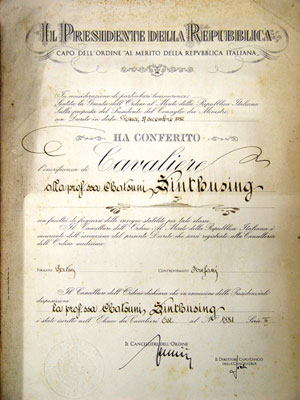 IL PRESIDENTE DELLA REPUBBLICA
CAPO DELL'ORDINE "AL MERITO DELLA REPVBBLICA ITALIANA"
In considerazione di particolari benemerenze;
Sentita la Giunta dell'Ordine al Merito della Repubblica Italiana
Sulla proposta del Presidente del Consiglio dei Ministri
con Decreto in data Roma, 27 dicembre
HA CONFERITO
l'onorificenza di Cavaliere
alla prof.ssa Sinthusing
con facoltà di fregiarsi delle insegne stabilite per tale classe
Il Cancelliere dell'Ordine Al Merito della Repubblica Italiana è
incaricato dell'esecuzione del presente Decreto che sarà registrato alla Cancelleria
dell'Ordine medesimo
FIRMATO Pertini CONTROFIRMATO
Il Cancelliere dell'Ordine dichiara che in esecuzione delle Presidenziali
disposizioni
la prof.ssa Sinthusing
è stata iscritta nell'Elenco dei Cavalieri al N. Serie
IL CANCELLIERE DELL'ORDINE
IL DIRETTORE CAPO UFFICIO
DELLA CANCELLERIA